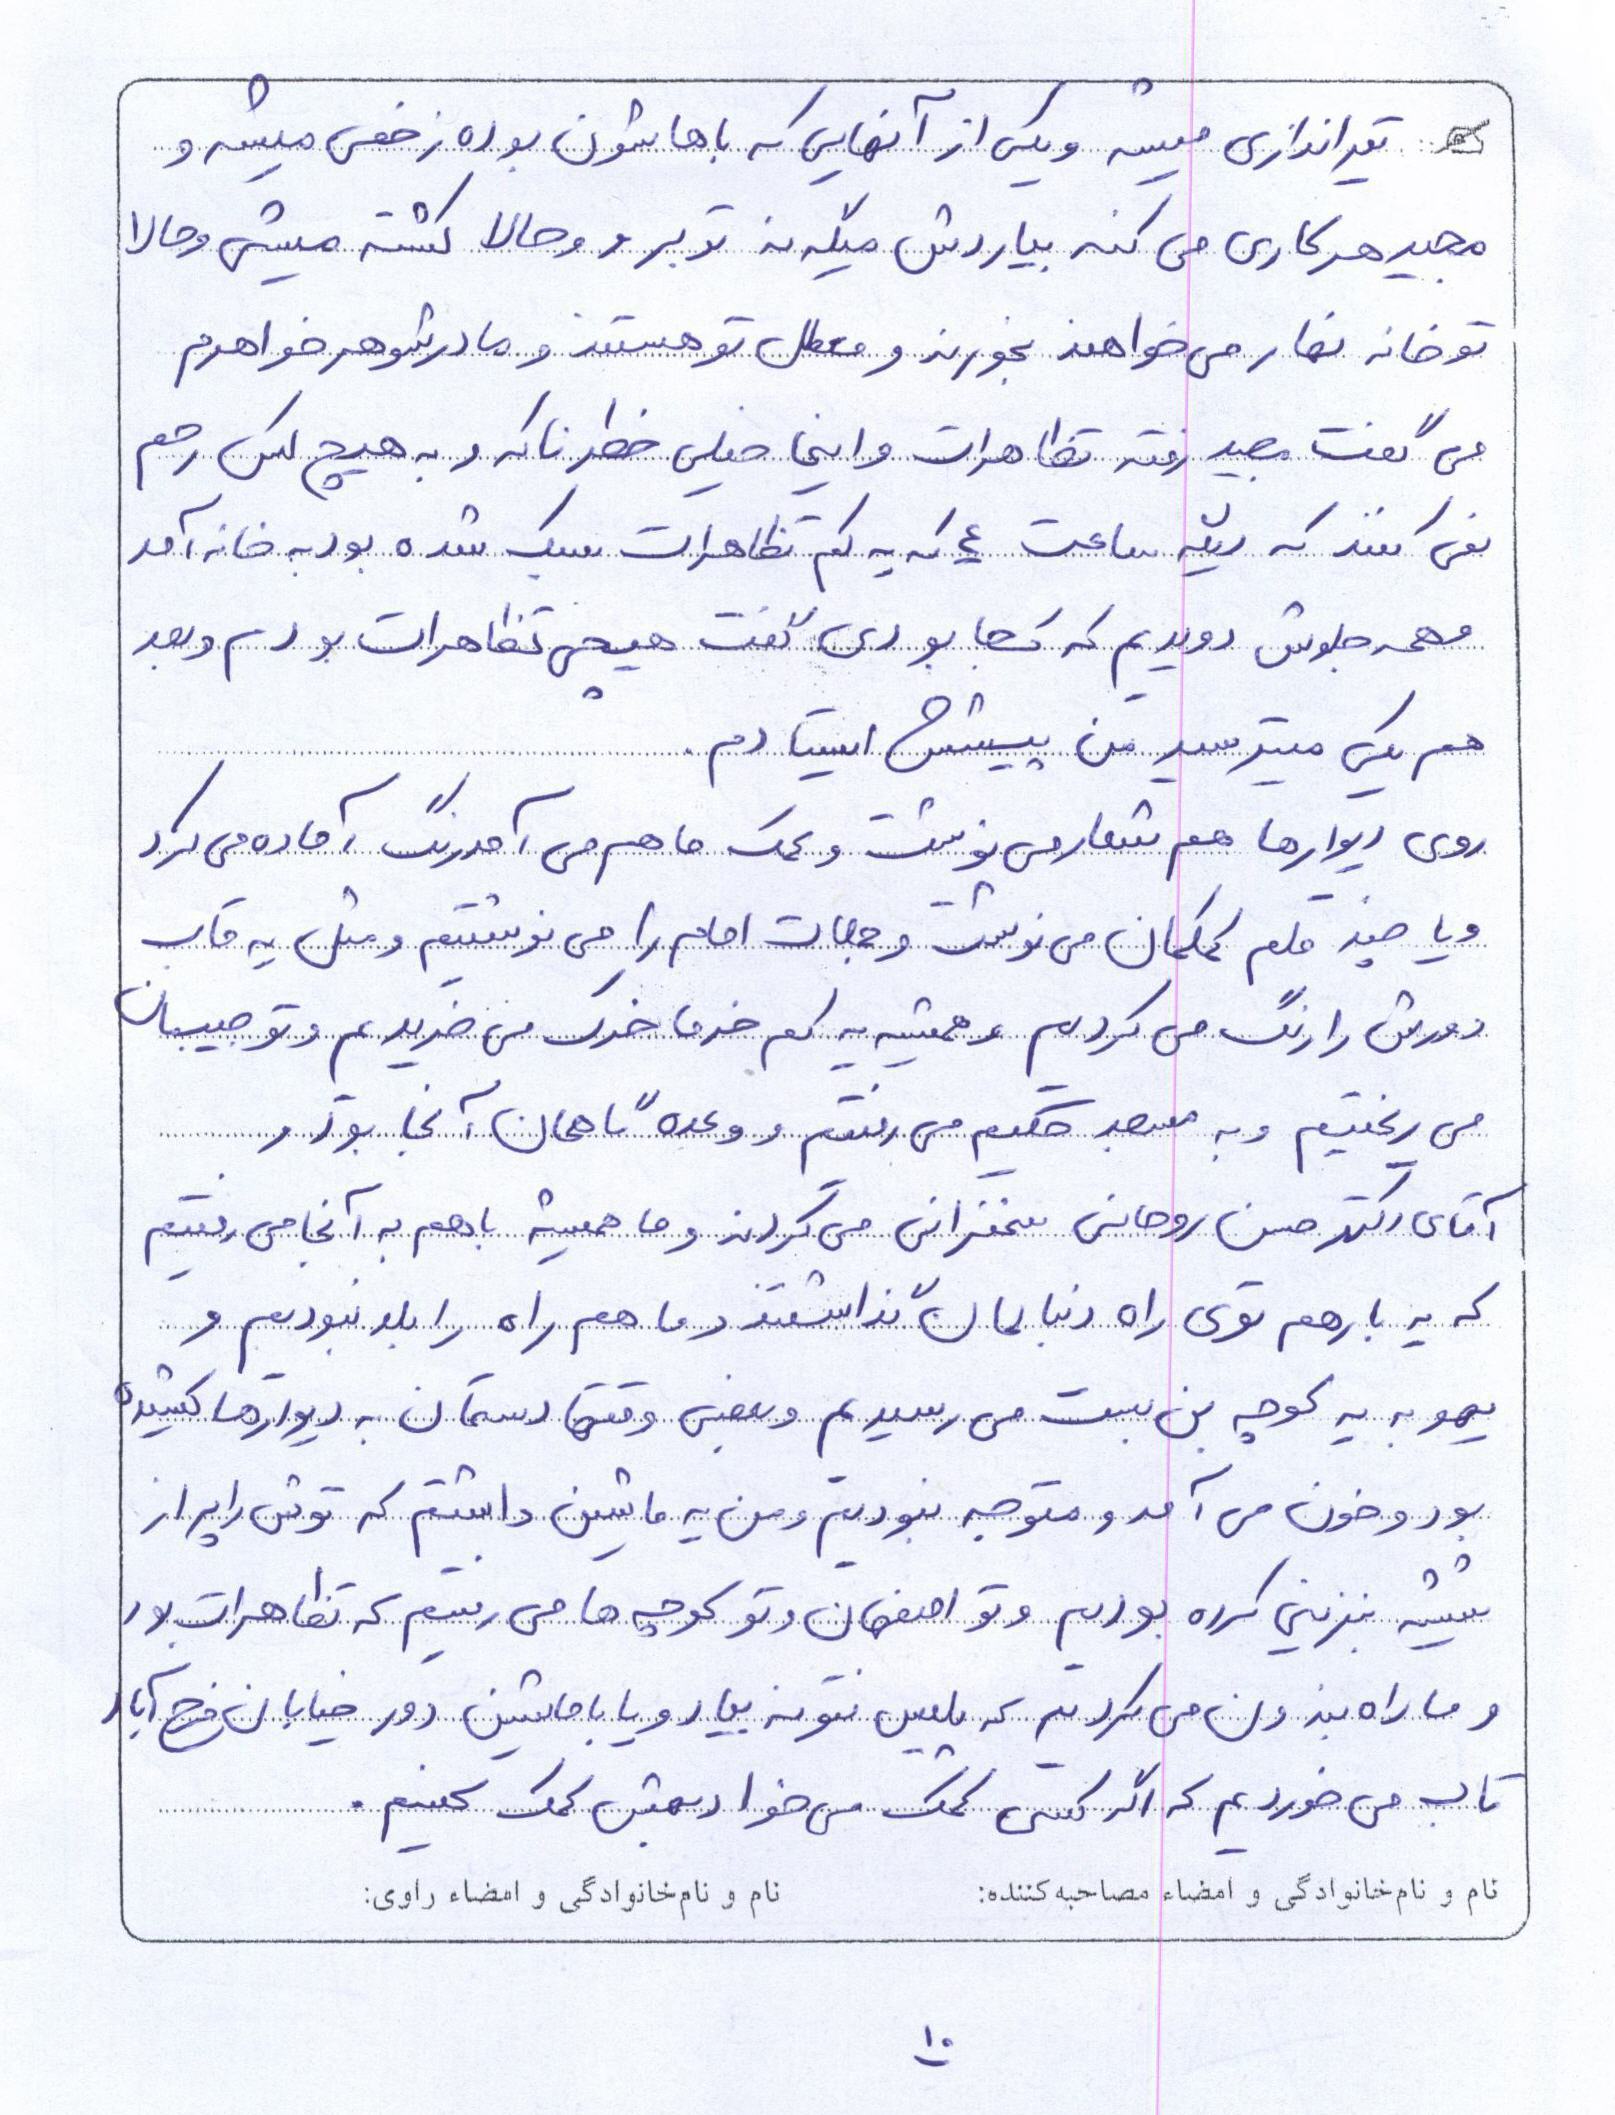 تیراندازی میشه و یکی از آنهایی که باهاشون بوده زخمی میشه و
مجید هر کاری می کنه بیاردش میگه نه تو برو وحالا کشته میشی وحالا
تو خانه نهار می خواهند بخورند و معطل تو هستند و مادرشوهر خواهرم
می گفت مجید رفته تظاهرات و اینجا خیلی خطرناکه و به هیچ کس رحم
نمی کنند که دیگه ساعت ٤ که یه کم تظاهرات سبک شده بود به خانه آمد
همه جلوش دویدیم که کجا بودی گفت هیچی تظاهرات بودم و بعد
هم یکی میترسید من پیشش ایستادم .
روی دیوارها هم شعار می نوشت و کمک ما هم می آمد رنگ آماده می کرد
و یا چند قلم کمکمان می نوشت و جملات امام را می نوشتیم و مثل یه قاب
دورش را رنگ می کردیم و همیشه یه کم خرما خرک می خریدیم و تو جیبمان
می ریختیم و به مسجد حکیم می رفتیم و وعده گاهمان آنجا بود و
آقای دکتر حسن روحانی سخنرانی می کردند و ما همیشه باهم به آنجا می رفتیم
که یه بار هم توی راه دنبالمان گذاشتند و ما هم راه را بلد نبودیم و
یهو به یه کوچه بن بست می رسیدیم و بعضی وقتها دستمان به دیوارها کشیده
بود و خون می آمد و متوجه نبودیم و من یه ماشین داشتم که توش را پر از
شیشه بنزینی کرده بودیم و تو اصفهان و تو کوچه ها می رفتیم که تظاهرات بود
و ما راه بندون می کردیم که پلیس نتونه بیاد و یا با ماشین دور خیابان فرح آباد
تاب می خوردیم که اگر کسی کمک می خواد بهش کمک کنیم .
نام و نام‌خانوادگی و امضاء مصاحبه‌کننده: نام و نام‌خانوادگی و امضاء راوی:
۱۰